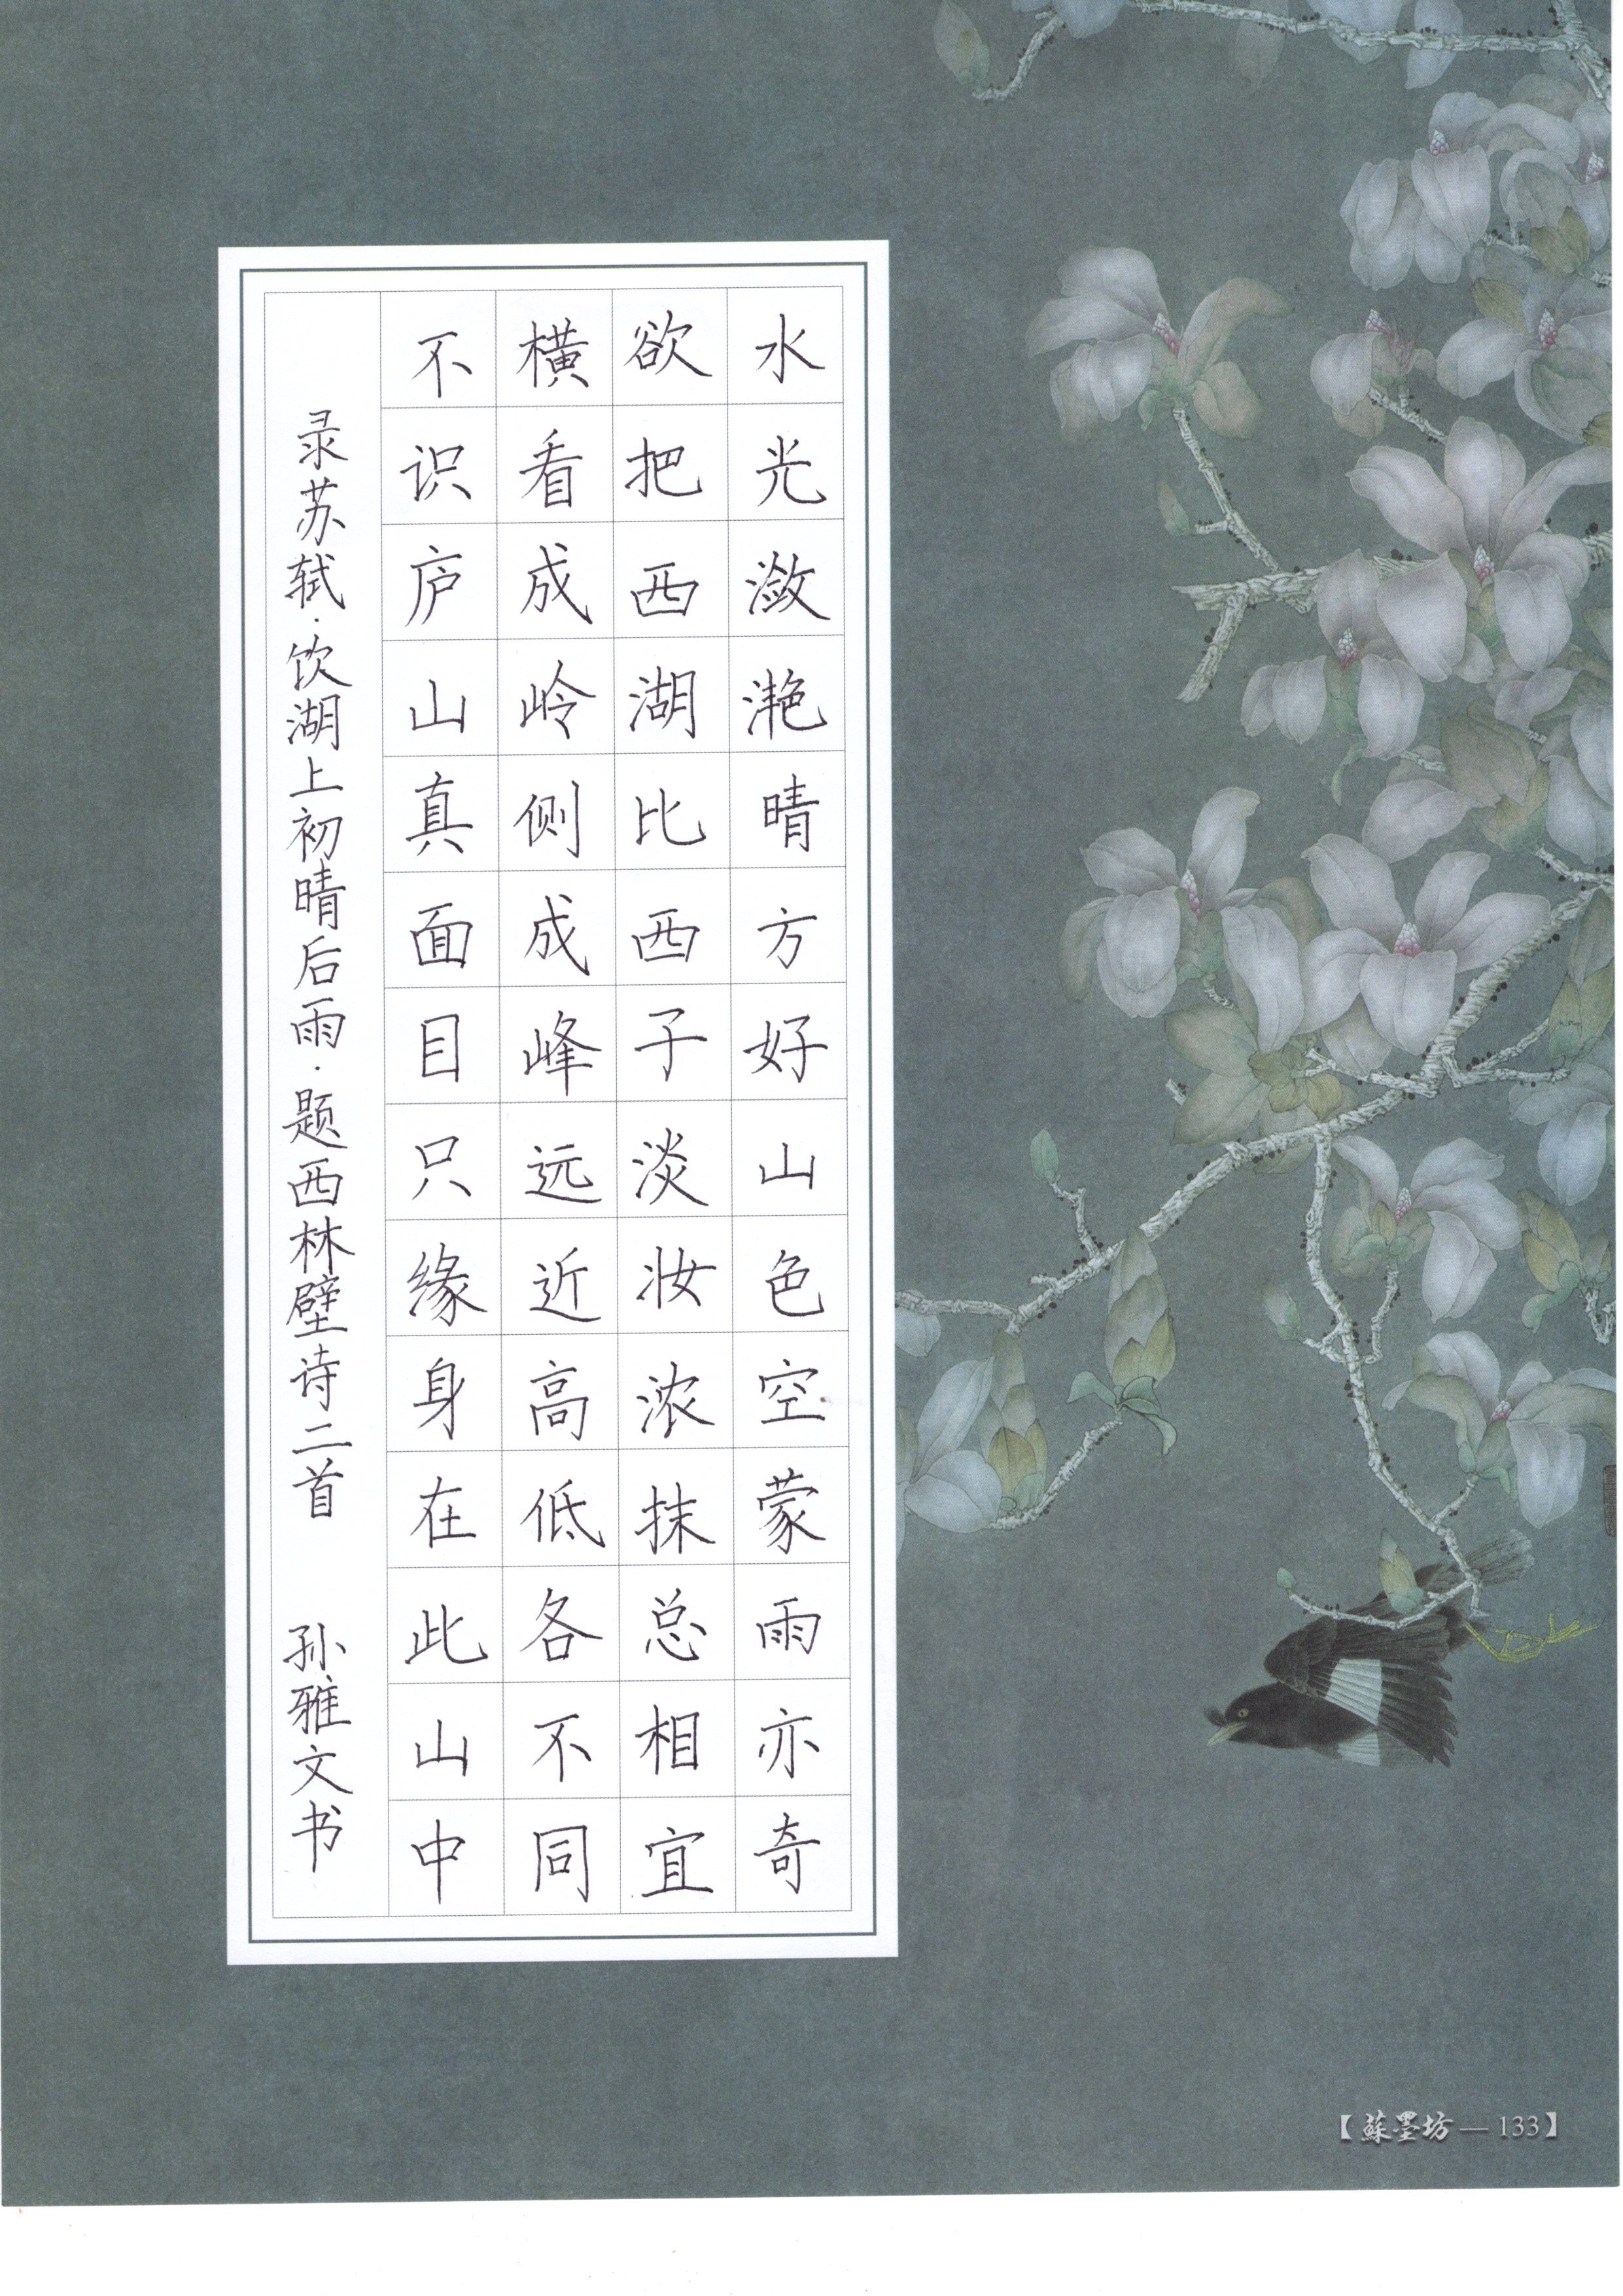 水光潋滟晴方好山色空蒙雨亦奇
欲把西湖比西子淡妆浓抹总相宜
横看成岭侧成峰远近高低各不同
不识庐山真面目只缘身在此山中
录苏轼·饮湖上初晴后雨·题西林壁诗二首 孙雅文书
【蘇墨坊—133】